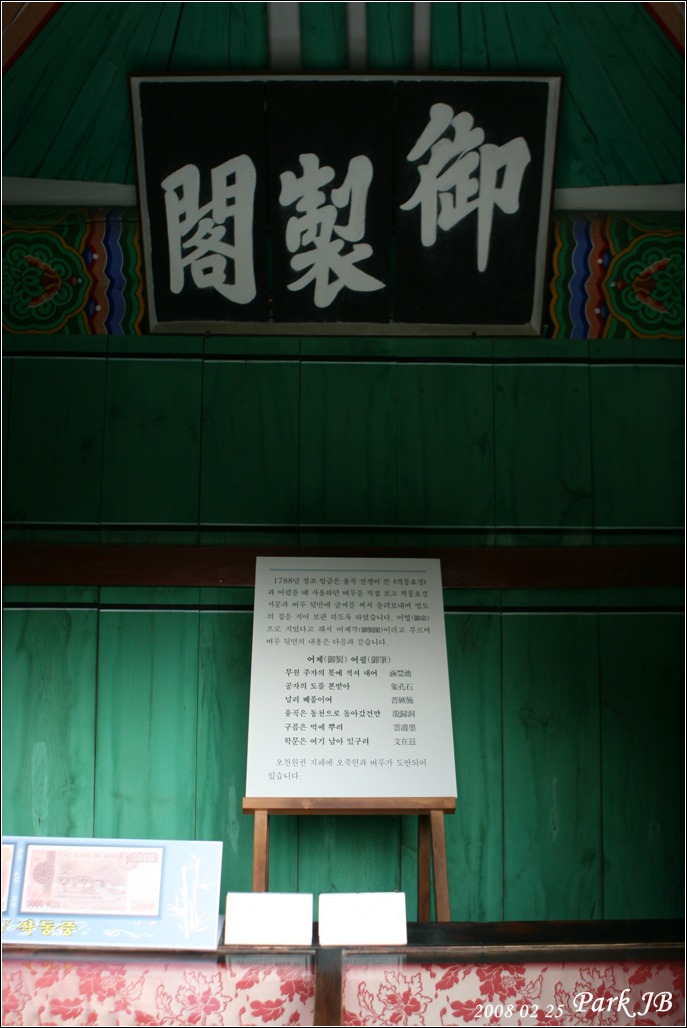 御製閣
1788년 정조 임금은 율곡 선생이 쓴 《격몽요결》
과 어렸을 때 사용하던 벼루를 직접 보고 격몽요결
서문과 벼루 뒷면에 글써를 써서 돌려보내며 별도
의 집을 지어 보관 하도록 하였습니다. 어명(御命)
으로 지었다고 해서 어제각(御製閣)이라고 부르며
벼루 뒷면의 내용은 다음과 같습니다.
어제(御製) 어필(御筆)
무원 주자의 못에 적셔 내어 涵婺池
공자의 도를 본받아 象孔石
널리 베풂이여 普厥施
율곡은 동천으로 돌아갔건만 龍歸洞
구름은 먹에 뿌려 雲潑墨
학문은 여기 남아 있구려 文在玆
오천원권 지폐에 오죽헌과 벼루가 도안되어
있습니다.
5000
2008 02 25 Park JB